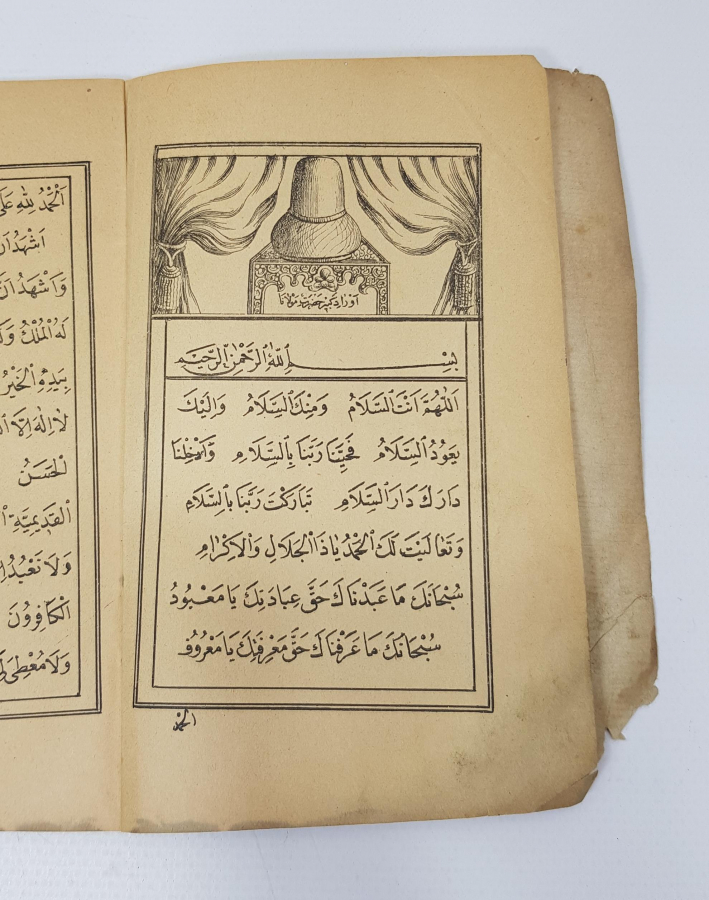 اوراد كبير حضرت مولانا
بِسْــمِ ٱللّٰهِ ٱلرَّحْمٰنِ ٱلرَّحِيْمِ
اَللّٰهُمَّ اَنْتَ ٱلسَّلَامُ وَمِنْكَ ٱلسَّلَامُ وَاِلَيْكَ
يَعُوْدُ ٱلسَّلَامُ فَحَيِّنَا رَبَّنَا بِٱلسَّلَامِ وَاَدْخِلْنَا
دَارَكَ دَارَ ٱلسَّلَامِ تَبَارَكْتَ رَبَّنَا بِالسَّلَامِ
وَتَعَالَيْتَ لَكَ ٱلْحَمْدُ يَا ذَا ٱلْجَلَالِ وَٱلْاِكْرَامِ
سُبْحَانَكَ مَا عَبَدْنَاكَ حَقَّ عِبَادَتِكَ يَا مَعْبُوْدُ
سُبْحَانَكَ مَا عَرَفْنَاكَ حَقَّ مَعْرِفَتِكَ يَا مَعْرُوْفُ
الحمد
اَلْحَمْدُ لِلّٰهِ عَلَى
اَشْهَدُ اَنْ
وَاَشْهَدُ اَنَّ
لَهُ الْمُلْكُ وَلَهُ
بِيَدِهِ الْخَيْرُ
لَا اِلٰهَ اِلَّا
الْحَسَنُ
الْقَدِيْمِيَّةِ
وَلَا نَعْبُدُ
الْكَافِرُوْنَ
وَلَا مُعْطِيَ